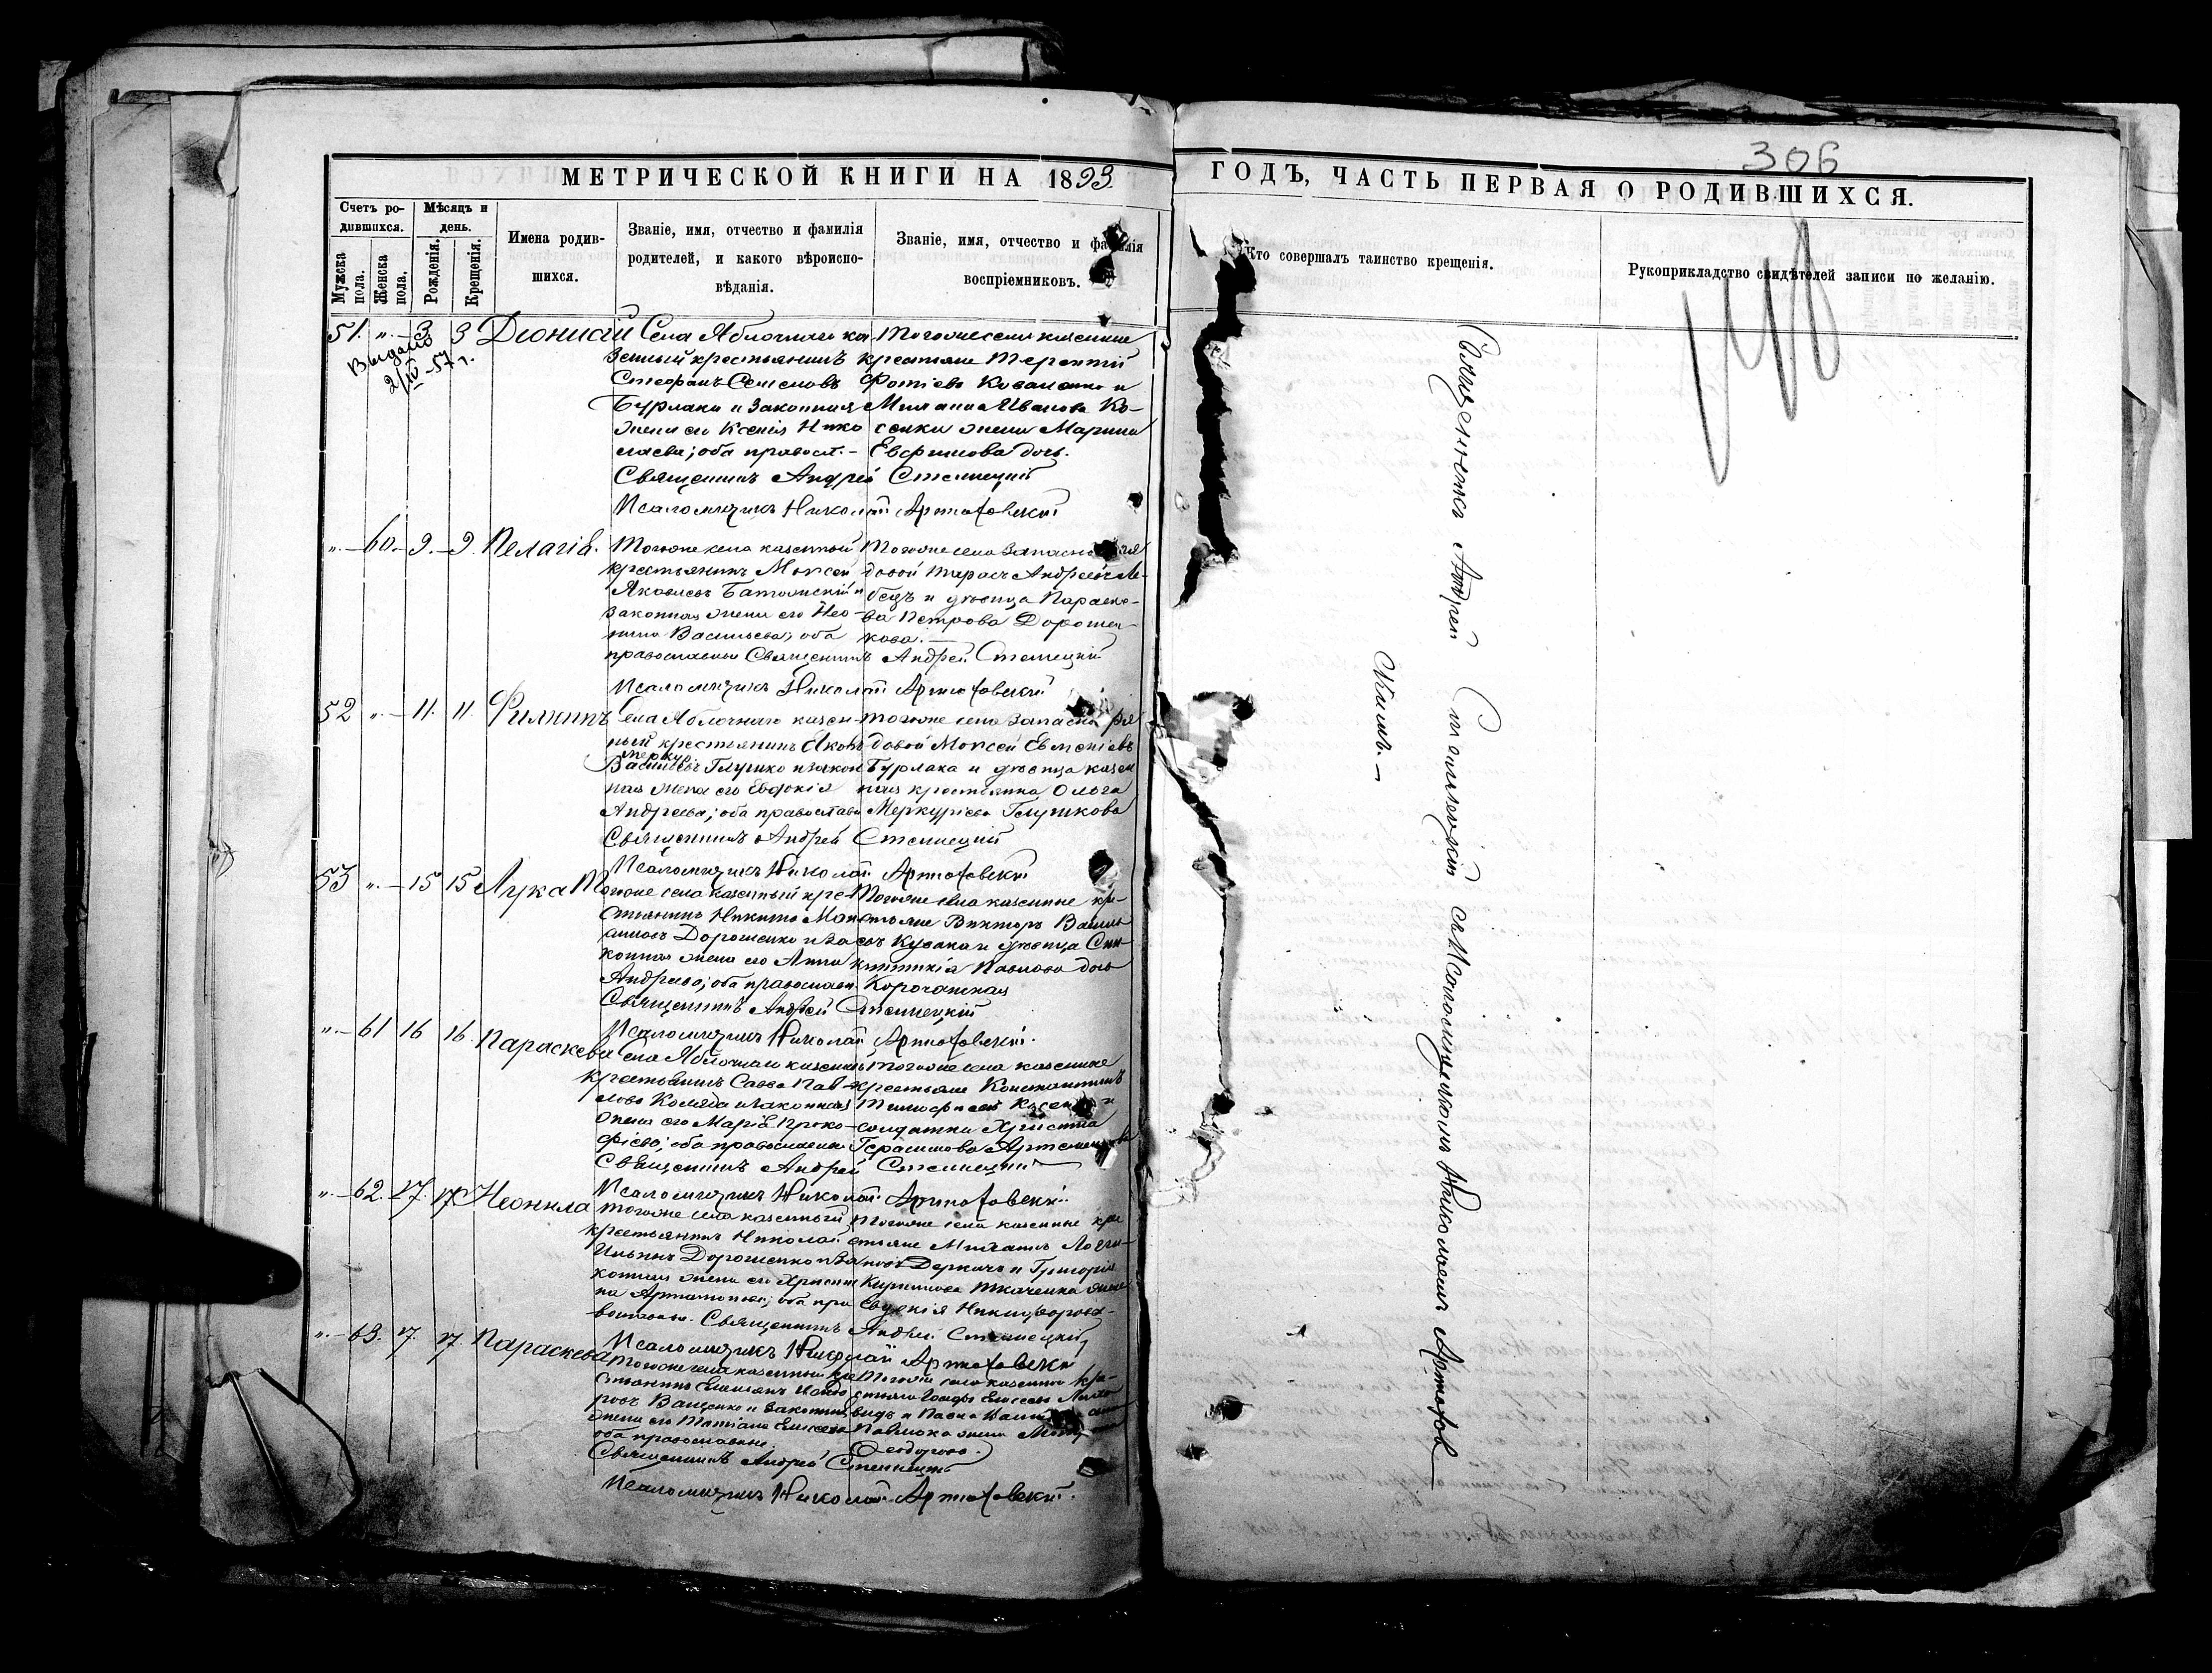 306
МЕТРИЧЕСКОЙ КНИГИ НА 1893
ГОДЪ, ЧАСТЬ ПЕРВАЯ О РОДИВШИХСЯ.
Счетъ ро-
дившихся.
Мѣсяцъ и
день.
Мужска
пола.
Женска
пола.
Рожденія.
Крещенія.
Имена родив-
шихся.
Званіе, имя, отчество и фамилія
родителей, и какого вѣроиспо-
вѣданія.
Званіе, имя, отчество и фамилія
воспріемниковъ.
Кто совершалъ таинство крещенія.
Рукоприкладство свидѣтелей записи по желанію.
51. „ 3 3 Діонисій
Выдано
2/IV-57 г.
Села Яблочнаго ка
зенный крестьянинъ
Стефанъ Семеновъ
Бурлака и законная
жена его Ксенія Нико
лаева; оба правосл.
Тогоже села казенные
крестьяне Терентій
Фотіевъ Коваленко и
Ивановъ Ко-
жена Марина
Евфимова дочь.
Священникъ Андрей
Псаломщикъ Николай Артюховскій
„ 60. 9. 9 Пелагія.
Тогоже села казенный
крестьянинъ Мокеи
Яковлевъ
законная жена его Нео-
нила Васильева; оба
православные
Тогоже села запасный ря
довой Тарасъ Андреевъ Ле-
бедь и дѣвица Параске-
ва Петрова Дорошен-
кова.
Священникъ Андрей
Псаломщикъ Николай Артюховскій
52 „ 11. 11 Филиппъ
Села Яблочнаго казен-
ный крестьянинъ Яковъ
Мерку
Васильевъ Глушко и закон
ная жена его Евдокія
Андреева; оба православн
тогоже села запасный ря
довой Мокей Евгеніевъ
Бурлака и дѣвица казен
ная крестьянка Ольга
Меркуріева Глушкова
Священникъ Андрей
Псаломщикъ Николай Артюховскій
53 „ 15 15 Лука
Тогоже села казенный кре-
стьянинъ Никита
Дорошенко и за
конная жена его Анна
Андреева; оба православн.
Тогоже села казенные кре-
стьяне Викторъ Василь
евъ и дѣвица Син
клитикія Павлова дочь
Корочанская
Священникъ Андрей
Псаломщикъ Николай Артюховскій.
„ 61 16 16 Параскева
Села Яблочнаго казенный
крестьянинъ Савва Пав-
ловъ Коляда и законная
жена его Марія Проко-
фіева; оба православные
тогоже села казенные
крестьяне Константинъ
Тимофеевъ
солдатка Христина
Герасимова
Священникъ Андрей
Псаломщикъ Николай Артюховскій
„ 62. 17. 17 Неонила
тогоже села казенный
крестьянинъ Николай
Ильинъ Дорошенко и за
конная жена его Христи
на Артамонова; оба пра
вославны.
Тогоже села казенные кре
стьяне Михаилъ Логги-
новъ Деркачъ и Григорія
Кириллова Ткаченка жена
Евдокія Никифорова
Священникъ Андрей
Псаломщикъ Николай Артюховскій
„ 63. 17. 17. Параскева
тогоже села казенный кре
стьянинъ Емельянъ
Ващенко и законная
жена его Татіана Елисеева
оба православные.
Тогоже села казенные кре-
стьяне Іосифъ Елисеевъ
жена
Феодорова.
Священникъ Андрей
Псаломщикъ Николай Артюховскій.
Священникъ Андрей съ Псаломщикомъ Николаемъ Артюхов
скимъ.